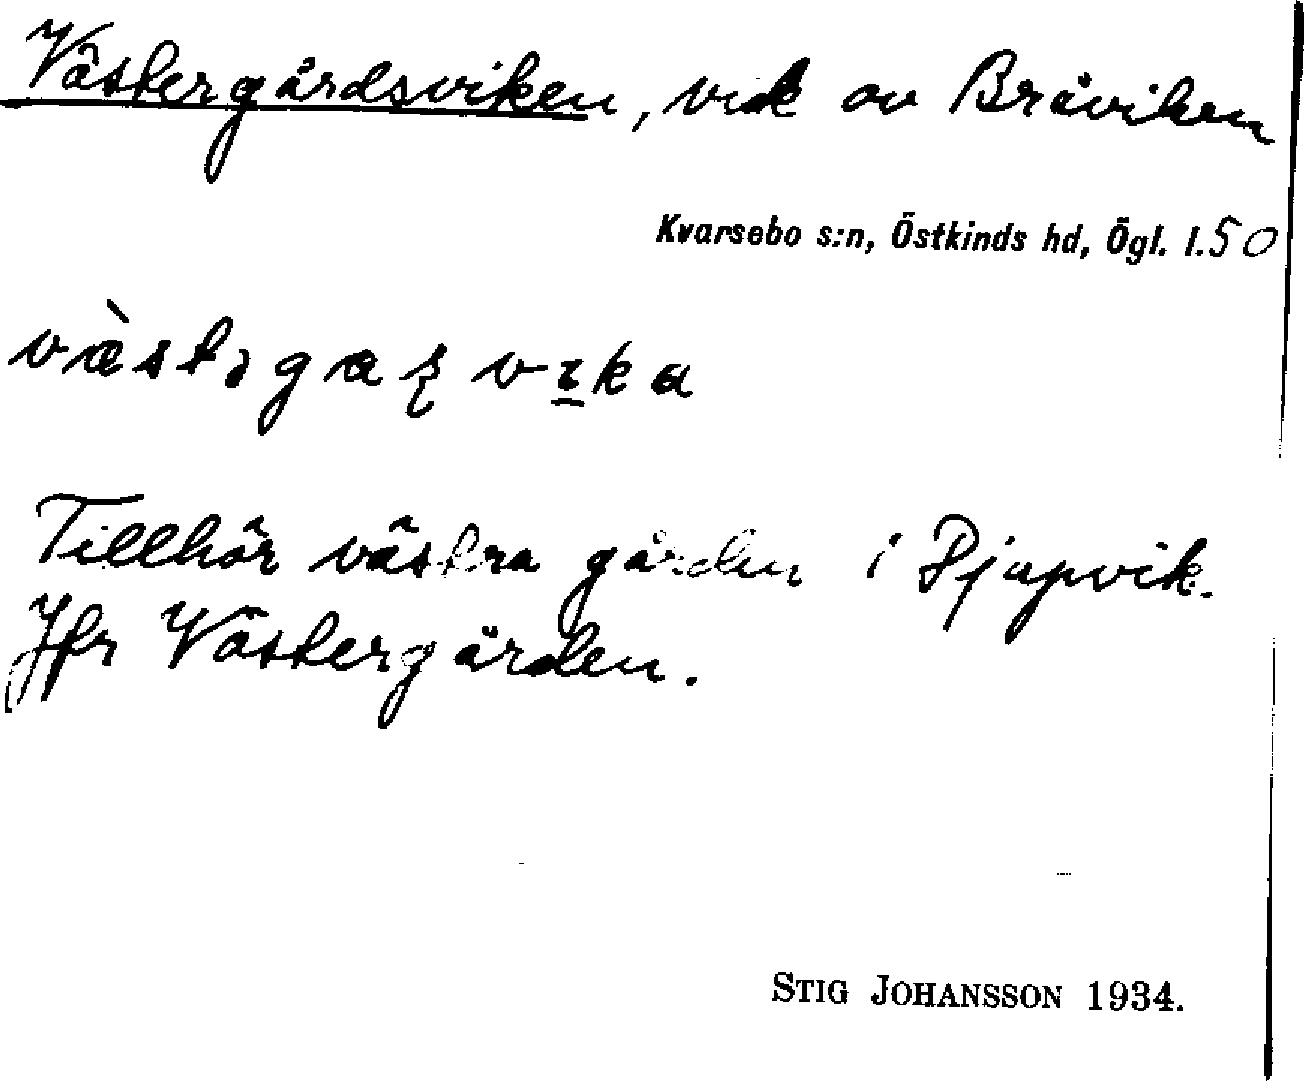 Västergårdsviken, vik av Bråviken
Kvarsebo s:n, Östkinds hd, Ögl. l. 50
Tillhör västra gården i Djupvik.
Jfr Västergården.
STIG JOHANSSON 1934.